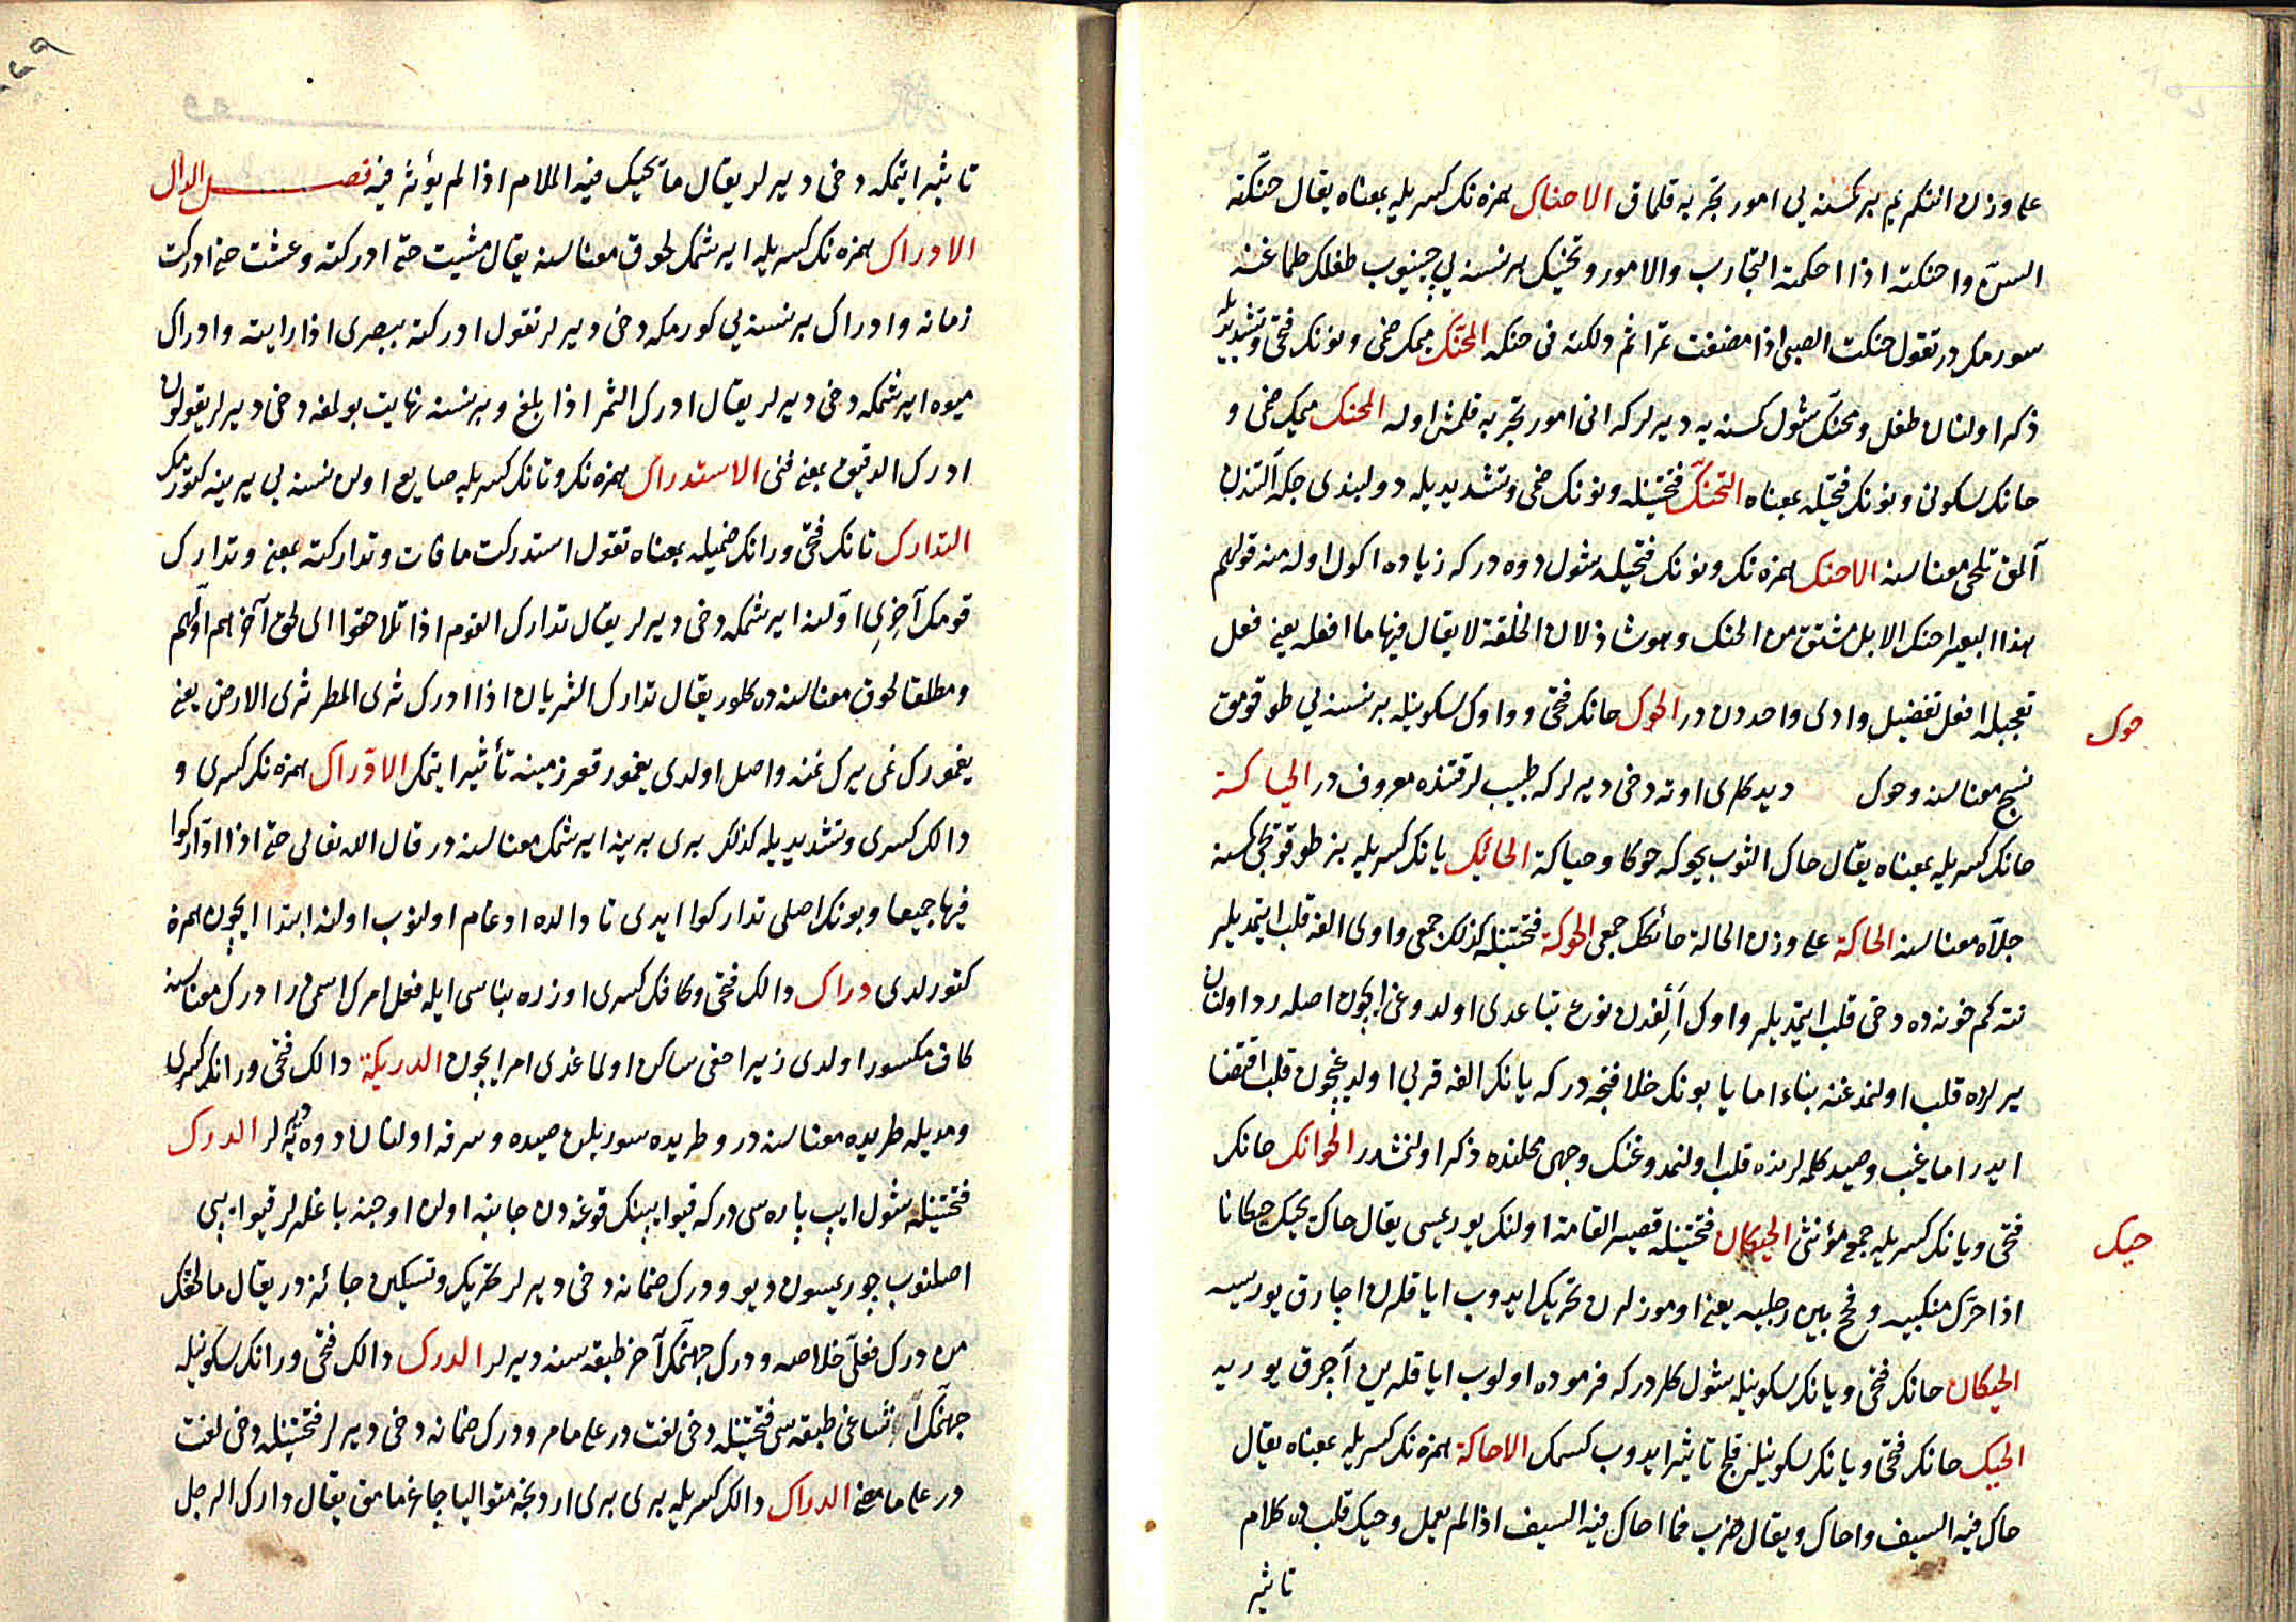 علی وزن التكريم بر كمسنه يی امور تجربه قلماق الاحناك همزه نك كسريله بمعناه يقال حنكته
السن واحنكته اذا احكمته التجارب والامور وتحنيك بر نسنه يی چينيوب طفلك طماغنه
سورمكدر تقول حنكت الصبی اذا مضغت تمرا ثم دلكته فی حنكه المحنك ميمك ضمی ونونك فتحی وتشديديله
ذكر اولنان طفل ومحنك شول كمسنه يه ديرلر كه انی امور تجربه قلمش اوله المحنك ميمك ضمی و
حانك سكونی ونونك فتحيله بمعناه التحنك فتحتينله ونونك ضمی وتشديديله دولبندی چكه آلتندن
آلمق تلحی معناسنه الاحنك همزه نك ونونك فتحيله شول دوه در كه زياده اكول اوله منه قولهم
هذا البعير احنك الابل مشتق من الحنك وهو شاذ لان الخلقة لا يقال فيها ما افعله يعنی فعل
تعجبله افعل تفضيل وادی واحددن در الحوك حانك فتحی وواوك سكونيله بر نسنه يی طوقومق
حوك
نسج معناسنه وحوك ديدكلری اوته دخی ديرلر كه طبيبلر قتنده معروف در الحياكة
حانك كسريله بمعناه يقال حاك الثوب يحوكه حوكا وحياكة الحائك يانك كسريله بز طوقويجی كمسنه
جلاه معناسنه الحاكة علی وزن الحالة حائكك جمعی الحوكة فتحتينله كذلك جمعی واوی الفه قلب ايتمديلر
نته كم خونه ده دخی قلب ايتمديلر واوك الفدن نوع تباعدی اولدوغی ايچون اصله رد اولنان
يرلرده قلب اولنمدغنه بناء اما يا بونك خلافنجه در كه يانك الفه قربی اولدغچون قلب اقتضا
ايدر اما غيب وصيد كلمه لرنده قلب اولنمدوغنك وجهی محلنده ذكر اولنمشدر الحوائك حانك
فتحی ويانك كسريله جمع مؤنثی الحيكان فتحتينله قصير القامة اولنك يوريمسی يقال حاك يحيك حيكانا
حيك
اذا حرك منكبيه وفحج بين رجليه يعنی اوموزلرن تحريك ايدوب اياقلرن اچارق يوريسه
الحيكان حانك فتحی ويانك سكونيله شول كلر در كه فرموده اولوب اياقلرين آچرق يوريه
الحيك حانك فتحی ويانك سكونيله قلج تاثير ايدوب كسمك الاحاكة همزه نك كسريله بمعناه يقال
حاك فيه السيف واحاك ويقال ضرب فما احاك فيه السيف اذا لم يعمل وحيك قلبده كلام
تاثير
تاثير ايتمكه دخی ديرلر يقال ما يحيك فيه الملام اذا لم يؤثر فيه فصل الدال
الادراك همزه نك كسريله ايرشمك لحوق معناسنه يقال مشيت حتی ادركته وعشت حتی ادركت
زمانه وادراك بر نسنه يی كورمكه دخی ديرلر تقول ادركته ببصری اذا رايته وادراك
ميوه ايرشمكه دخی ديرلر يقال ادرك الثمر اذا بلغ وبر نسنه نهايت بولمغه دخی ديرلر يقولون
ادرك الدقيق بمعنی فنی الاستدراك همزه نك وتانك كسريله ضايع اولن نسنه يی يرينه كتورمك
التدارك تانك فتحی ورانك ضميله بمعناه تقول استدركت ما فات وتداركته بمعنی وتدارك
قومك آخری اولنه ايرشمكه دخی ديرلر يقال تدارك القوم اذا تلاحقوا ای لحق آخرهم اولهم
ومطلقا لحوق معناسنه ده كلور يقال تدارك الثريان اذا ادرك ثری المطر ثری الارض يعنی
يغمورك غی يرك غنه واصل اولدی يغمور قعر زمينه تأثير ايتمك الادراك همزه نك كسری و
دالك كسری وتشديديله كذلك بری برينه ايرشمك معناسنه در قال الله تعالی حتی اذا اداركوا
فيها جميعا وبونك اصلی تداركوا ايدی تا دالده ادغام اولنوب اولنه ابتدا ايچون همزه
كتورلدی دراك دالك فتحی وكافك كسری اوزره بناسی ايله فعل امرك اسمی در ادرك معناسنه
كاف مكسور اولدی زيرا حقی ساكن اولماغدی امر ايچون الدريكة دالك فتحی ورانك كسری
ومديله طريده معناسنه در وطريده سوريلن صيده وسرقه اولنان دوه يه ديرلر الدرك
فتحتينله شول ايپ پاره سی در كه قيو ايپنك قوغه دن جانبه اولن اوجنه باغلرلر قيو ايپی
اصلنوب چوريمسون ديو ودرك ضمانه دخی ديرلر تحريك وتسكين جائزدر يقال ما لحقك
من درك فعلی خلاصه ودرك جهنمك آخر طبقه سنه ديرلر الدرك دالك فتحی ورانك سكونيله
جهنمك اشاغی طبقه سی فتحتينله دخی لغت در علی ما مر ودرك ضمانه دخی ديرلر فتحتينله دخی لغت
در علی ما مضی الدراك دالك كسريله بری بری اردنجه متواليا چاغرمامق يقال دارك الرجل